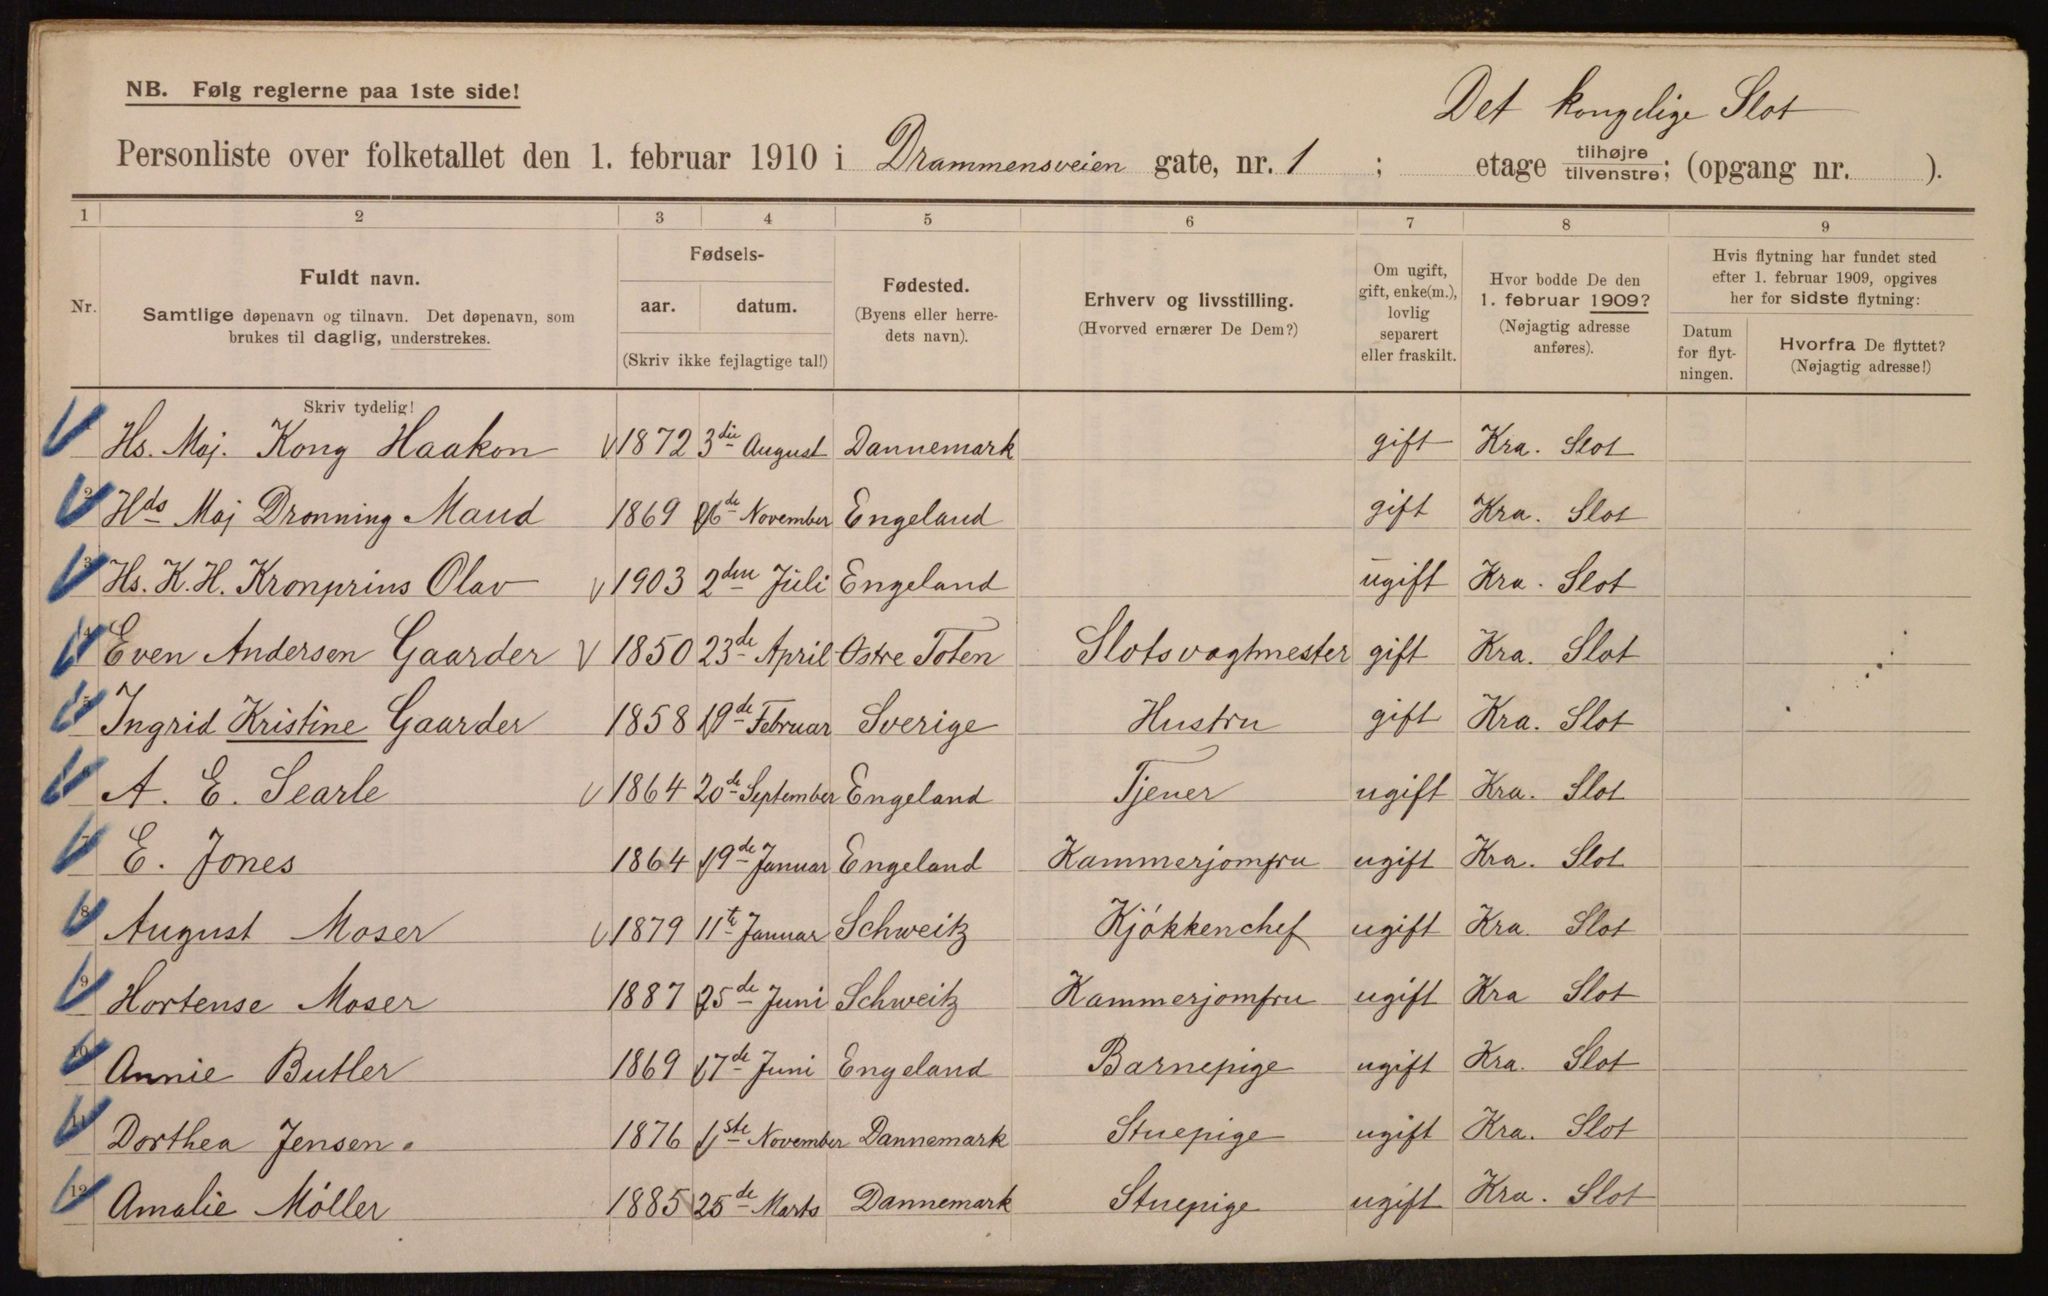 Det kongelige Slot
NB. Følg reglerne paa 1ste side!
Personliste over folketallet den 1. februar 1910 i Drammensveien gate, nr. 1 ; etage tilhøjre/tilvenstre; (opgang nr. ).
1 2 3 4 5 6 7 8 9
Nr.
Fuldt navn.
Samtlige døpenavn og tilnavn. Det døpenavn, som
brukes til daglig, understrekes.
Skriv tydelig!
Fødsels-
aar. datum.
(Skriv ikke fejlagtige tal!)
Fødested.
(Byens eller herre-
dets navn).
Erhverv og livsstilling.
(Hvorved ernærer De Dem?)
Om ugift,
gift, enke(m.),
lovlig
separert
eller fraskilt.
Hvor bodde De den
1. februar 1909?
(Nøjagtig adresse
anføres).
Hvis flytning har fundet sted
efter 1. februar 1909, opgives
her for sidste flytning:
Datum
for flyt-
ningen.
Hvorfra De flyttet?
(Nøjagtig adresse!)
Hs. Maj. Kong Haakon 1872 3die August Dannemark gift Kra. Slot
2 Hds Maj Dronning Maud 1869 26de November Engeland gift Kra. Slot
3 Hs. K. H. Kronprins Olav 1903 2den Juli Engeland ugift Kra. Slot
4 Even Andersen Gaarder 1850 23de April Østre Toten Slotsvagtmester gift Kra. Slot
5 Ingrid Kristine Gaarder 1858 19de Februar Sverige Hustru gift Kra. Slot
6 A. E. Searle 1864 20de September Engeland Tjener ugift Kra. Slot
7 E. Jones 1864 19de Januar Engeland Kammerjomfru ugift Kra. Slot
8 August Moser 1879 11te Januar Schweitz Kjøkkenchef ugift Kra. Slot
9 Hortense Moser 1887 25de Juni Schweitz Kammerjomfru ugift Kra Slot
10 Annie Butler 1869 17de Juni Engeland Barnepige ugift Kra. Slot
11 Dorthea Jensen. 1876 1ste November Dannemark Stuepige ugift Kra. Slot
12 Amalie Møller 1885 25de Marts Dannemark Stuepige ugift Kra. Slot